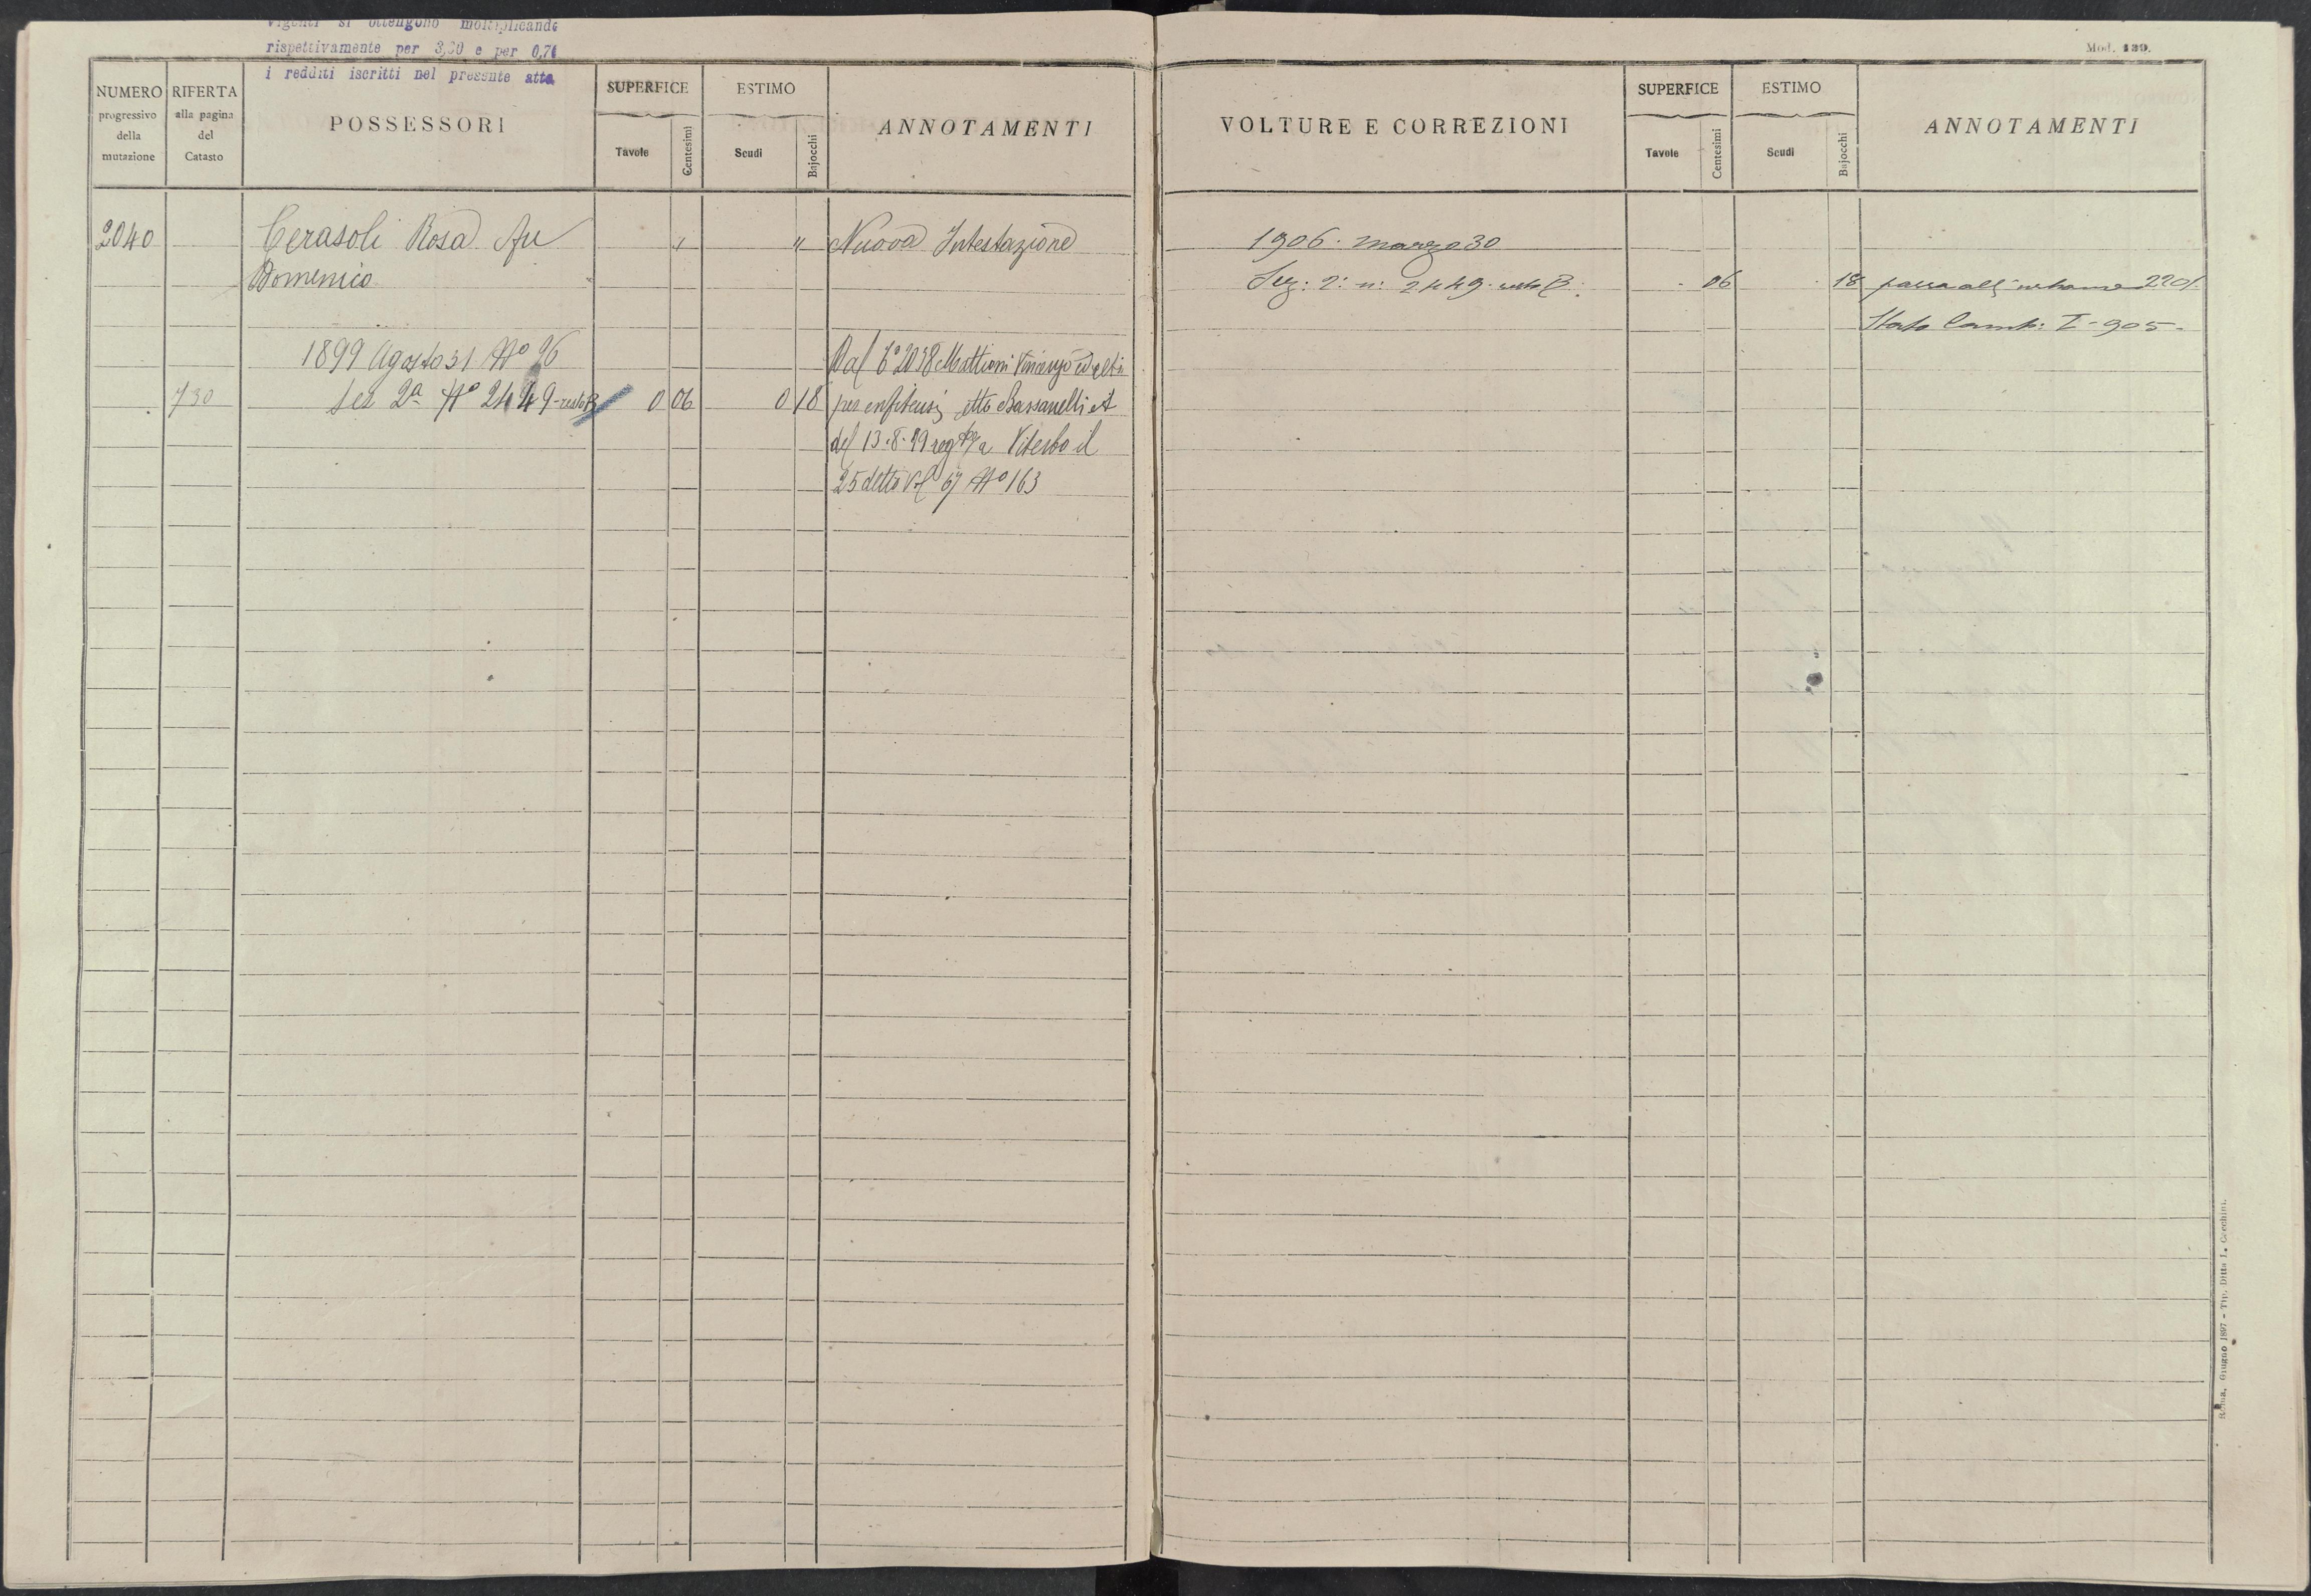 vigenti si ottengono moltiplicando
rispettivamente per 3,00 e per 0,74
i redditi iscritti nel presente atto
Mod. 139.
NUMERO progressivo della mutazione
RIFERTA alla pagina del Catasto
POSSESSORI
SUPERFICE
Tavole Centesimi
ESTIMO
Scudi Bajocchi
ANNOTAMENTI
VOLTURE E CORREZIONI
SUPERFICE
Tavole Centesimi
ESTIMO
Scudi Bajocchi
ANNOTAMENTI
2040 Cerasoli Rosa fu " " Nuova Intestazione
Domenico
1899 Agosto 31 Nº 96 Dal 2038 Mattioni Vincenzo ed altri
730 Sez 2ª Nº 2449 resto B 0 06 0 18 per enfiteusi atto Bassanelli
del 13·8·99 a Viterbo il
25 detto Vol 67 Nº 163
1906. marzo 30
Sez: 2ª n: 2449 resto B. 06 18 passa all' urbano 2201
Stato Camb: I-905-
Roma, Giugno 1897 - Tip. Ditta L. Cecchini.